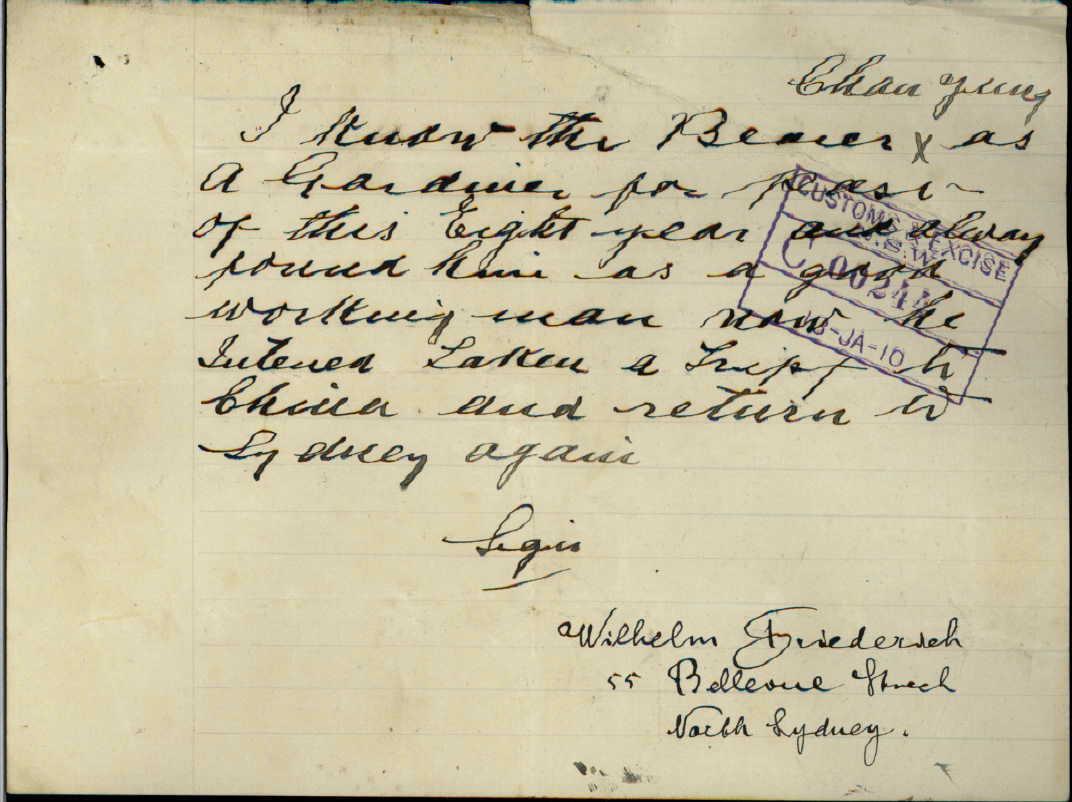 Chan Yung
I know the Bearer X as
A Gardiner for
of this Eight year and alway
found him as a good
working man now he
Intened Taken a Tripp to
China and return to
Sydney again
Sign
Wilhelm Friederich
55 Bellevue Street
North Sydney.
CUSTOMS & EXCISE
N.S.W.
C 00244
JA-10